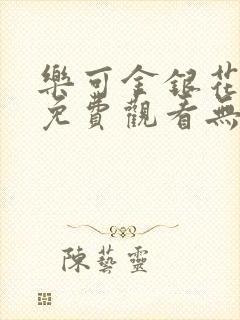 樂可金銀花
免費觀看無
陳藝靈